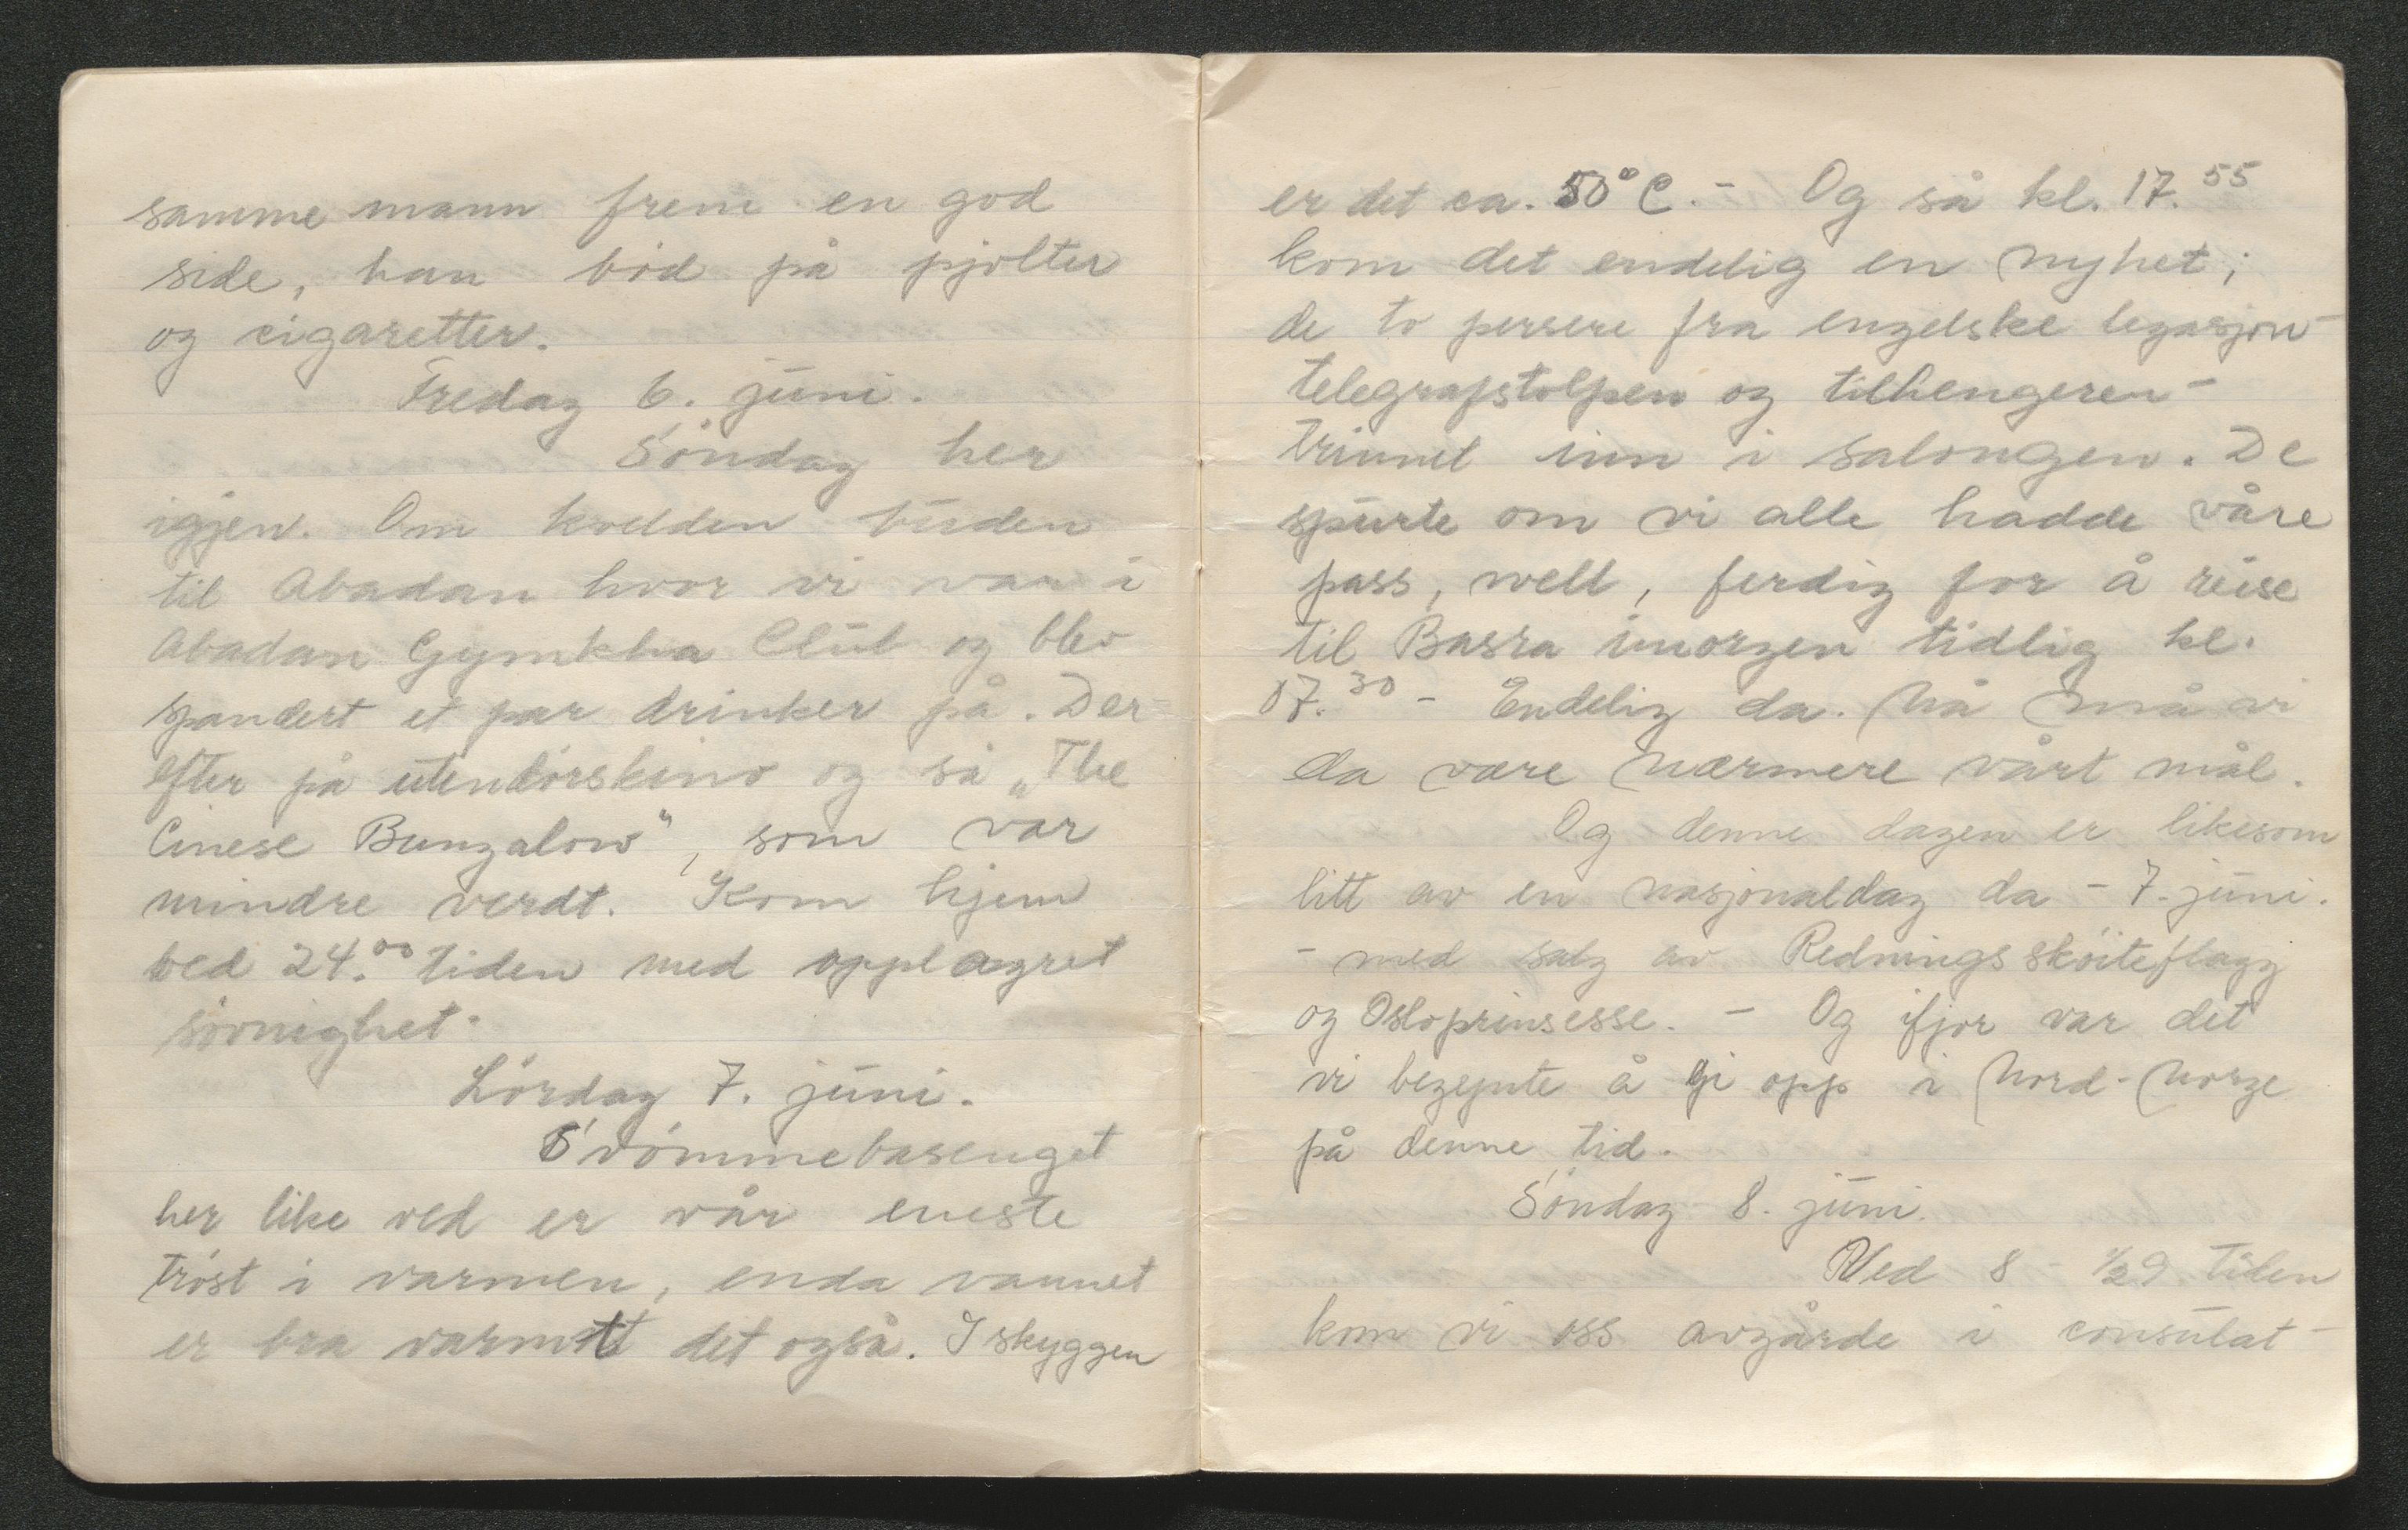 samme mann frem en god
side, han bód på pjolter
og cigaretter.
Fredag 6. juni.
Sóndag her
igjen. Om kvelden turen
til Abadan hvor vi var i
Abadan Gymkha Club og blev
spandert et par drinker på. Der-
efter på utendórskino og så „The
Cinese Bungalow", som var
mindre verdt. Kom hjem
ved 24.00 tiden med opplagret
sóvnighet.
Lórdag 7. juni.
Svómmebasenget
her like ved er vår eneste
tróst i varmen, enda vannet
er bra varmt det også. I skyggen
er det ca. 50° C. - Og så kl. 17.55
kom det endelig en nyhet;
de to persere fra engelske legasjon-
telegrafstolpen og tilhengeren-
trinnet inn i salongen. De
spurte om vi alle hadde våre
pass, well, ferdig for å reise
til Basra imorgen tidlig kl.
07.30 - Endelig da. Nå må vi
da være nærmere vårt mål.
Og denne dagen er likesom
litt av en nasjonaldag da - 7. juni.
- med salg av Redningsskóiteflagg
og Osloprinsesse. - Og ifjor var det
vi begynte å gi opp i Nord-Norge
på denne tid.
Sóndag 8. juni.
Ved 8 - ½9 tiden
kom vi oss avgårde i consulat-